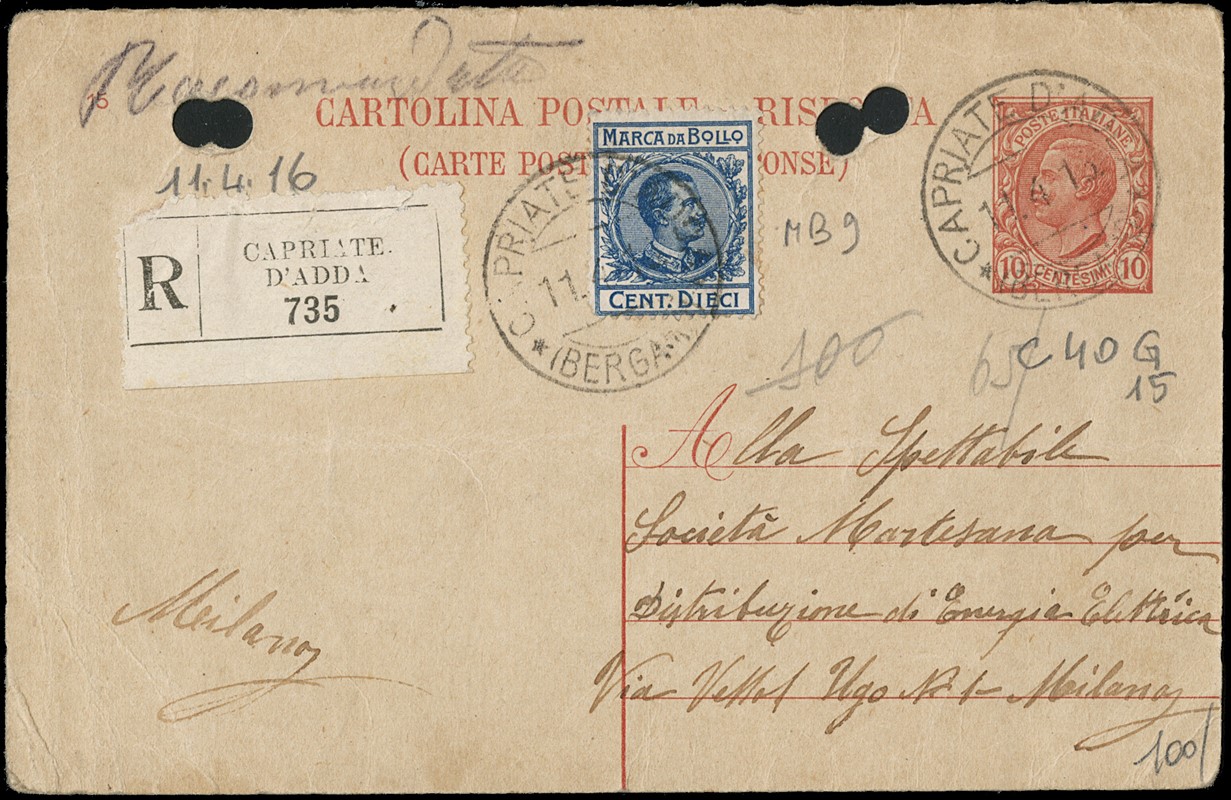 Raccomandata
15
CARTOLINA POSTALE RISPOSTA
(CARTE POST PONSE)
11.4.16
R
CAPRIATE
D'ADDA
735
MARCA DA BOLLO
CENT. DIECI
CAPRIATE
11.
(BERGA
MB 9
CAPRIATE D'A
11.4.16
(BERGA
POSTE ITALIANE
10 CENTESIMI 10
100
65/
C 40 G
15
Alla Spettabile
Società Martesana per
Distribuzione di Energia Elettrica
Via Ugo N. 1 Milano
Milano
100/